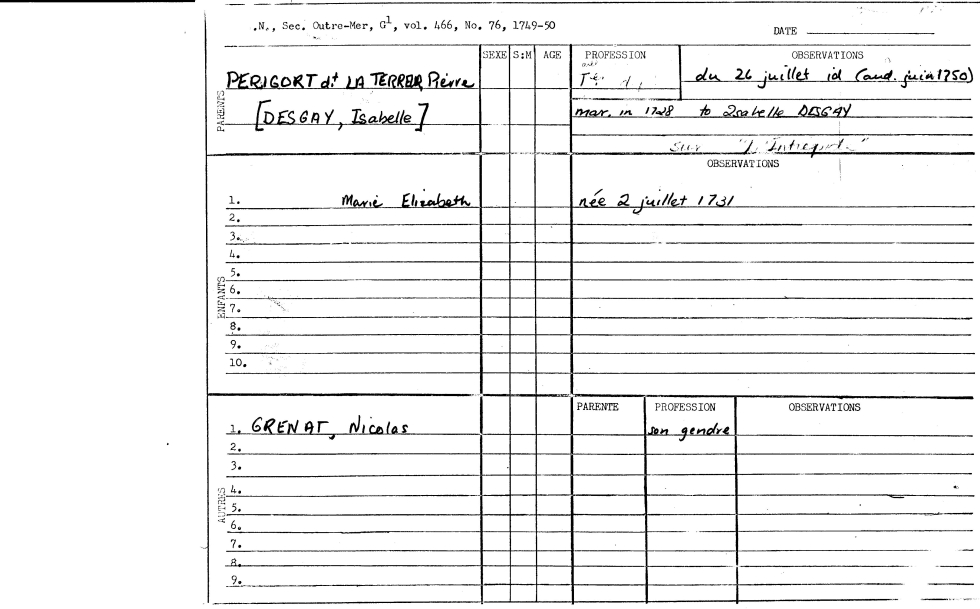 .N., Sec. Outre-Mer, G1, vol. 466, No. 76, 1749-50
DATE
SEXE S:M AGE PROFESSION OBSERVATIONS
PARENTS
PERIGORT dt LA TERREUR, Pierre
du 26 juillet id (aud. juin 1750)
[DESGAY, Isabelle]
mar. in 1728 to Isabelle DESGAY
sur "L'Intrepide"
OBSERVATIONS
ENFANTS
1. Marie Elizabeth née 2 juillet 1731
2.
3.
4.
5.
6.
7.
8.
9.
10.
PARENTE PROFESSION OBSERVATIONS
AUTRES
1. GRENAT, Nicolas son gendre
2.
3.
4.
5.
6.
7.
8.
9.